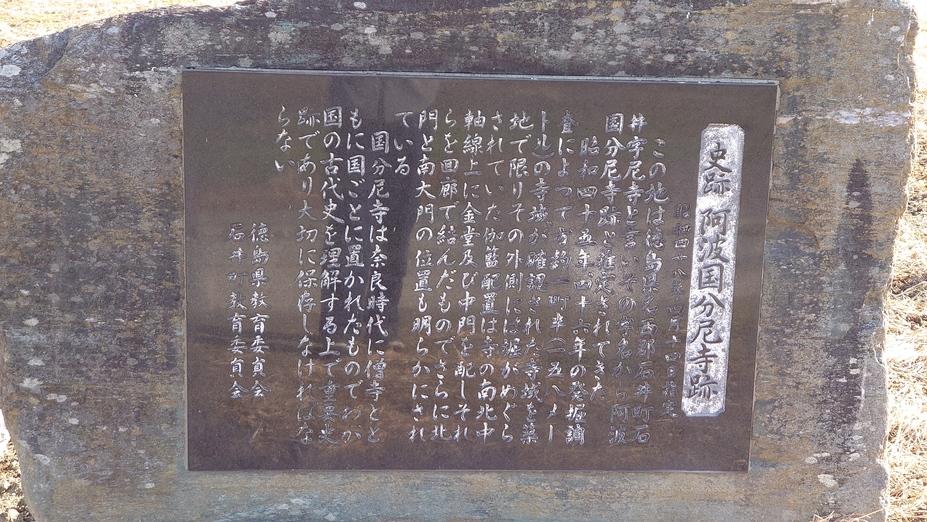 史跡 阿波国分尼寺跡
昭和四十八年四月十四日指定
この地は徳島県名西郡石井町石
井字尼寺と言いその字名から阿波
国分尼寺跡と推定されてきた
昭和四十五年、四十六年の発掘調
査によって方約一町半(一五八メー
トル)の寺域が確認された寺域を築
地で限りその外側には堀がめぐら
されていた伽藍配置は寺の南北中
軸線上に金堂及び中門を配しそれ
らを回廊で結んだものでさらに北
門と南大門の位置も明らかにされ
ている
国分尼寺は奈良時代に僧寺とと
もに国ごとに置かれたものでわが
国の古代史を理解する上で重要史
跡であり大切に保存しなければな
らない
徳島県教育委員会
石井町教育委員会